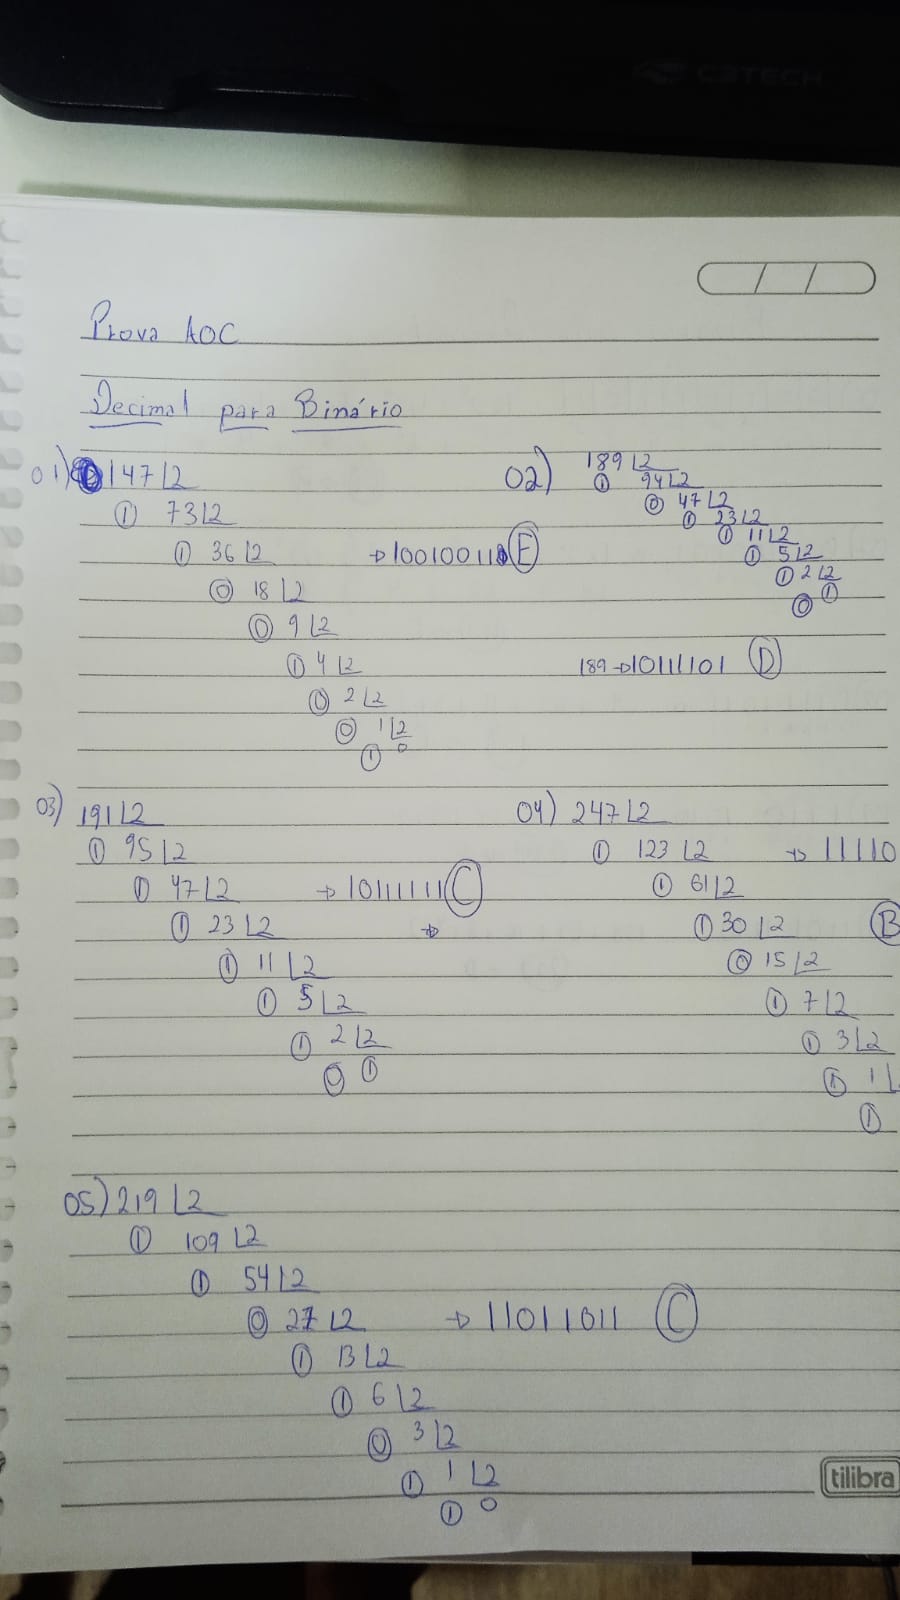 C3TECH
Prova AOC
Decimal para Binário
01) 147 2
1 73 2
1 36 2
0 18 2
0 9 2
1 4 2
0 2 2
0 1 2
1 0
E
02) 189 2
1 94 2
0 47 2
1 23 2
1 11 2
1 5 2
1 2 2
0 1
189 → 10111101 D
03) 191 2
1 95 2
1 47 2
1 23 2
1 11 2
1 5 2
1 2 2
0 1
→ 10111111 C
→
04) 247 2
1 123 2
1 61 2
1 30 2
0 15 2
1 7 2
1 3 2
1 1
1
→ 11110
B
05) 219 2
1 109 2
1 54 2
0 27 2
1 13 2
1 6 2
0 3 2
1 1 2
1 0
→ 11011011 C
tilibra